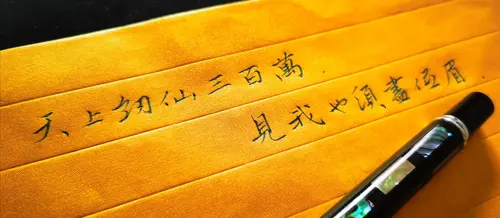 天上劍仙三百萬.
見我也須盡低眉.